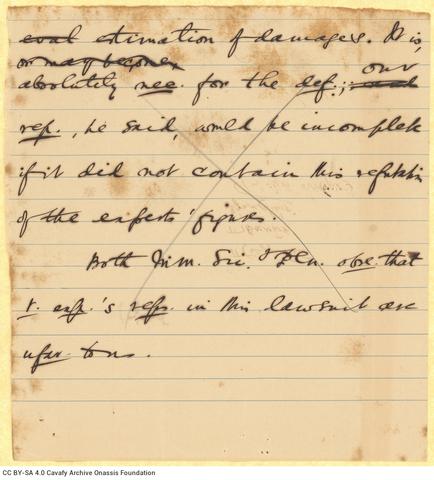 eval estimation of damages. It is,
or may become
absolutely nec. for the def.; our
rep., he said, would be incomplete
if it did not contain this refutation
of the experts' figures.
Both Mm. Sic. & Pln. obse that
t. exp.'s reps. in this lawsuit are
ufav. to us.
CC BY-SA 4.0 Cavafy Archive Onassis Foundation